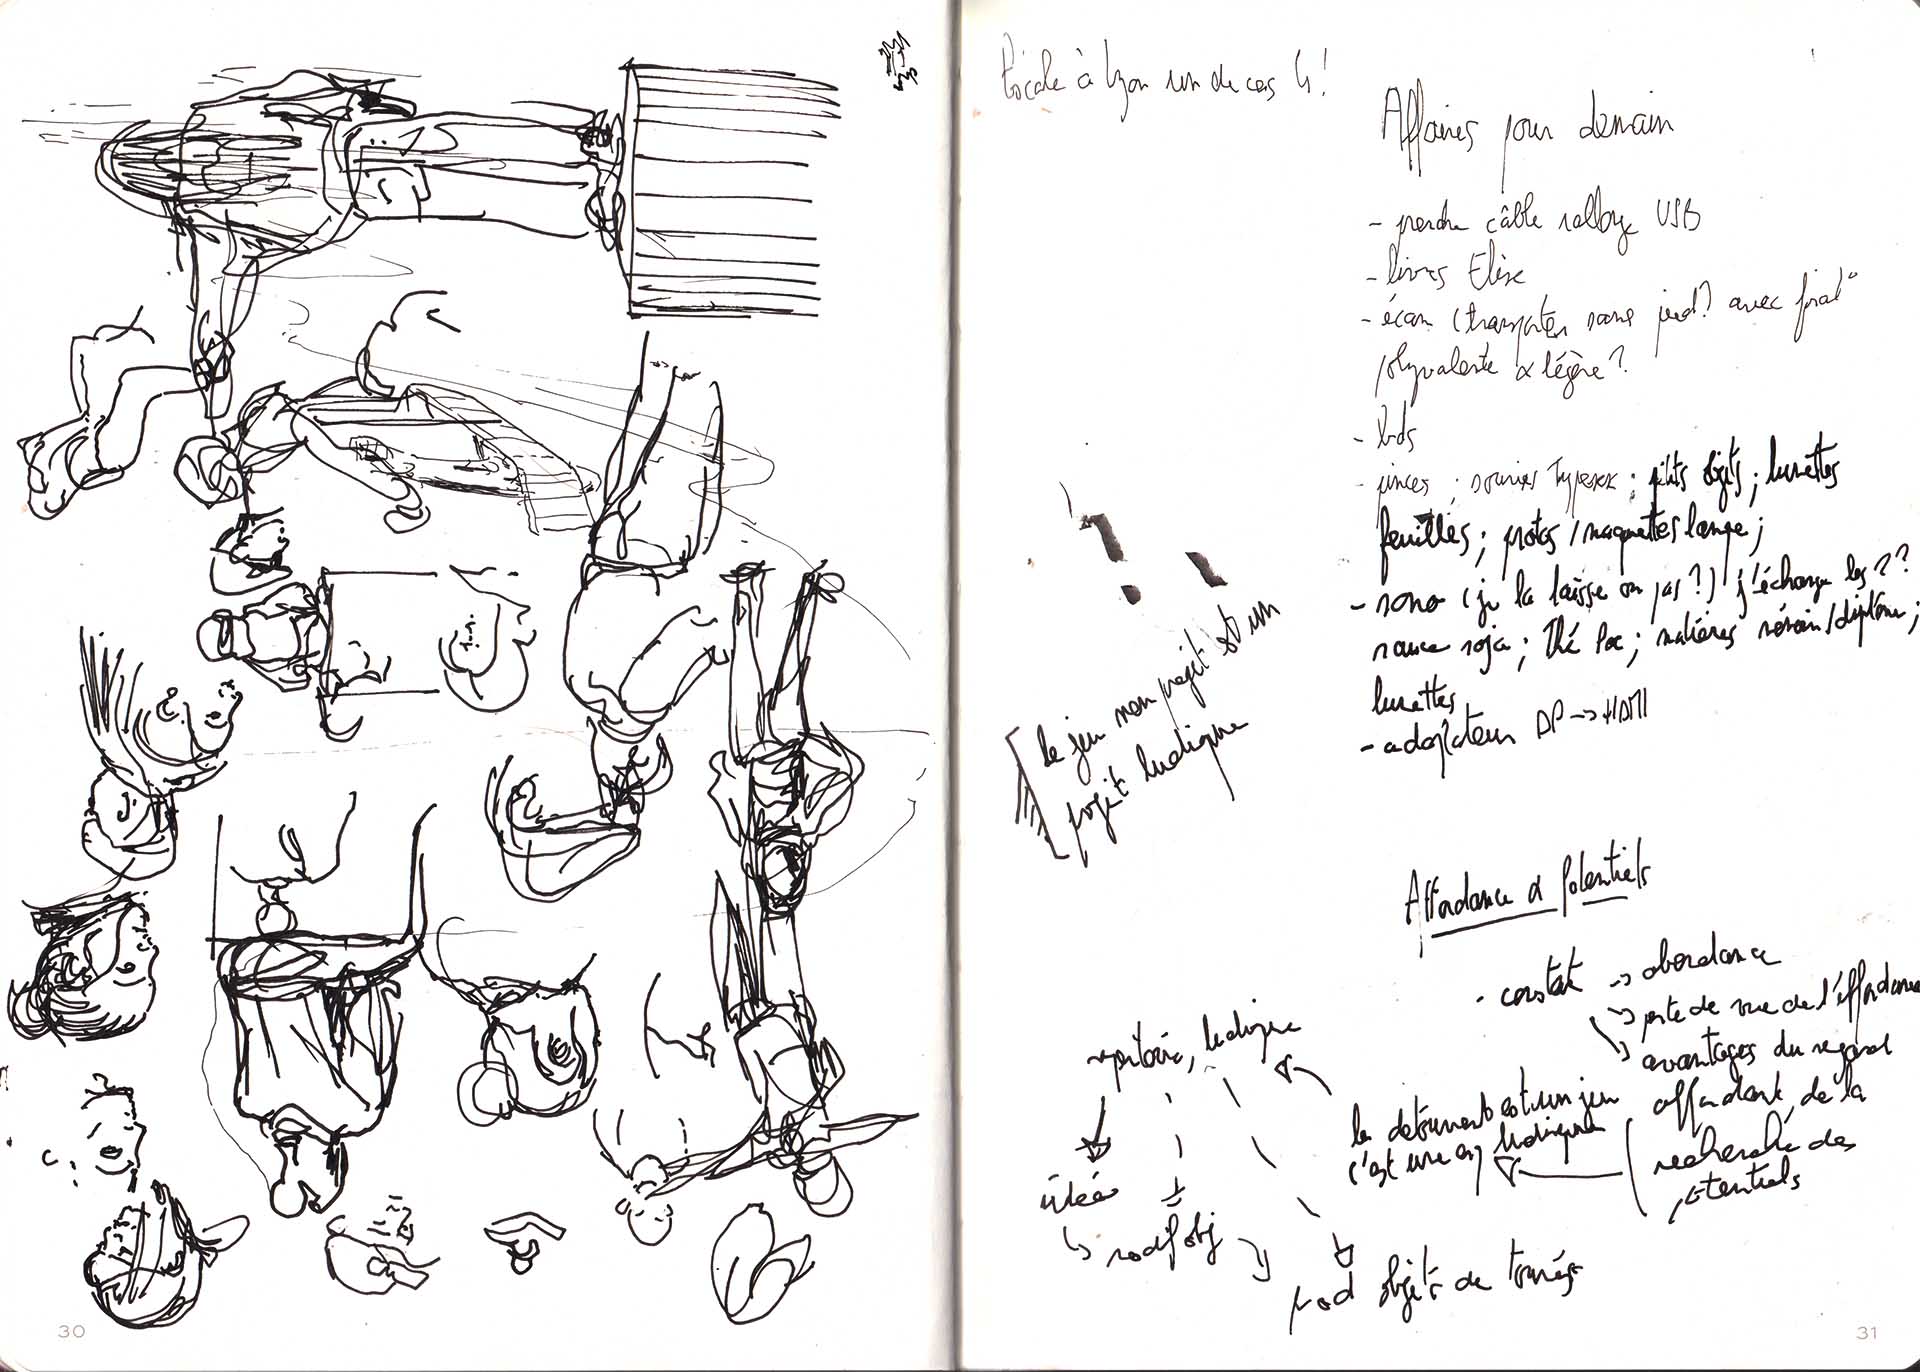 à Lyon un de ces 4 !
Affaires pour demain
- prendre câble rallonge USB
- livres Elise
- écran (transporter sans pied ? avec
polyvalente & légère ?
- bds
- pinces ; ; petits objets ; lunettes
feuilles ; protos / maquettes lampe ;
- sono (je la laisse ou pas ?) j'échange les ??
sauce soja ; thé ; matières /diplôme ;
lunettes
- adaptateur DP -> HDMI
le jeu mon projet est un
projet ludique
Affordance & Potentiels
- constat -> abondance
-> perte de vue de l'affordance
-> avantages du regard
affordant, de la
recherche des
potentiels
le détournement est un jeu
c'est une ludique
répertoire, ludique
idées
-> modif obj
prod objets détournés
30
31